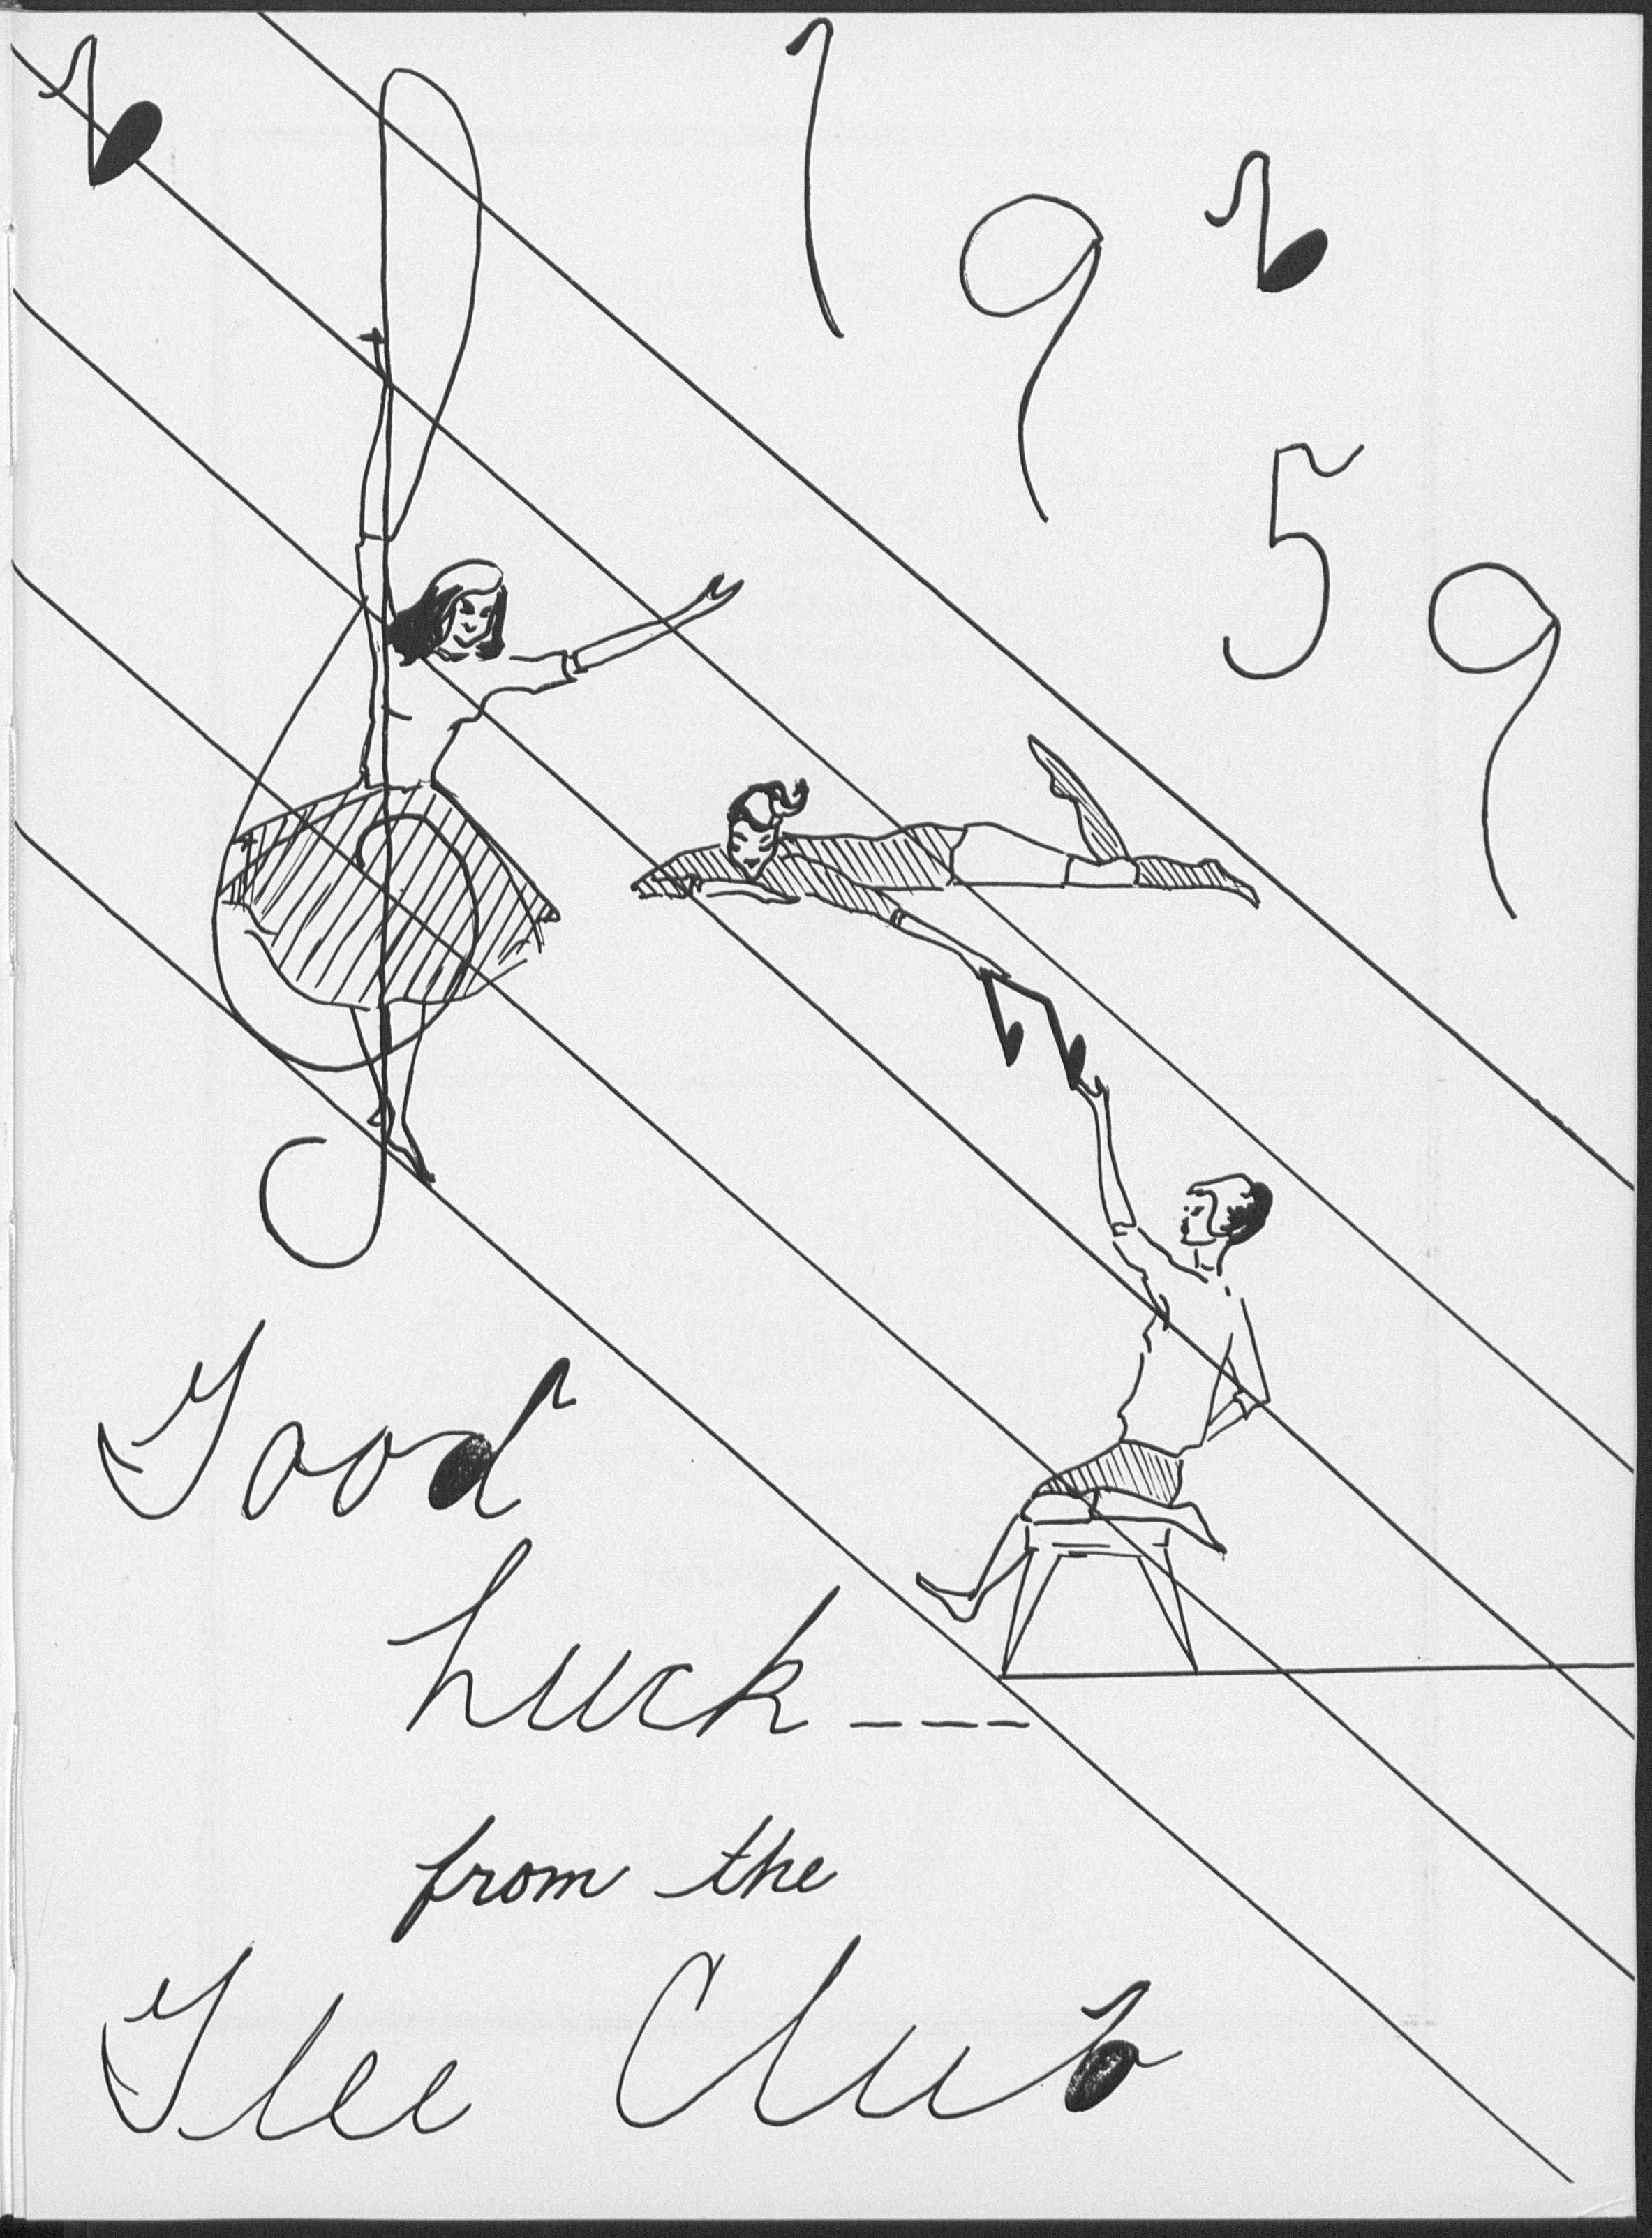 1959
Good
Luck---
from the
Glee Club